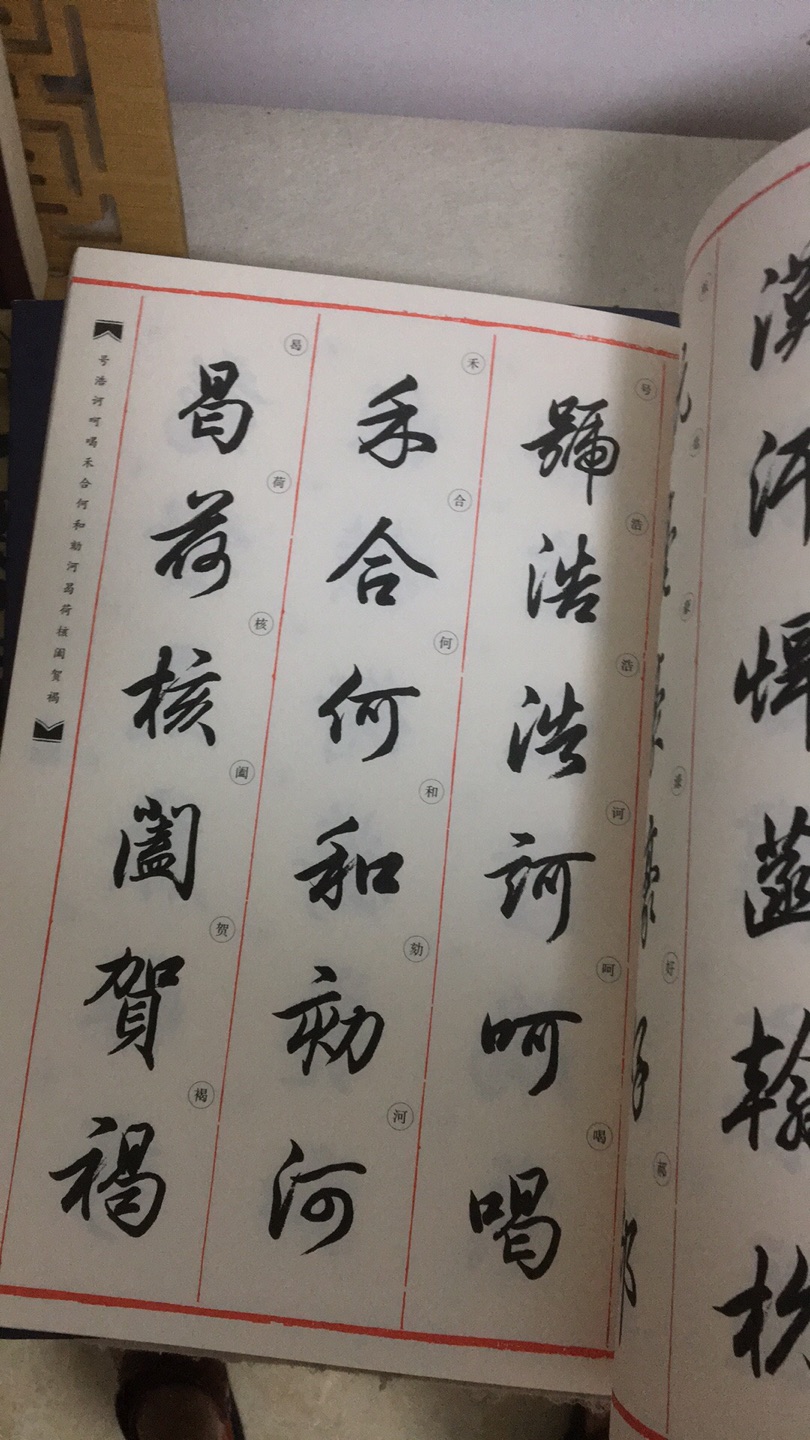 号浩诃呵喝禾合何和劾河曷荷核阖贺褐
号 浩 浩 诃 呵 喝
號浩浩訶呵喝
禾 合 何 和 劾 河
禾合何和劾河
曷 荷 核 阖 贺 褐
曷荷核闔賀褐
漠
汗
翰
杭
好